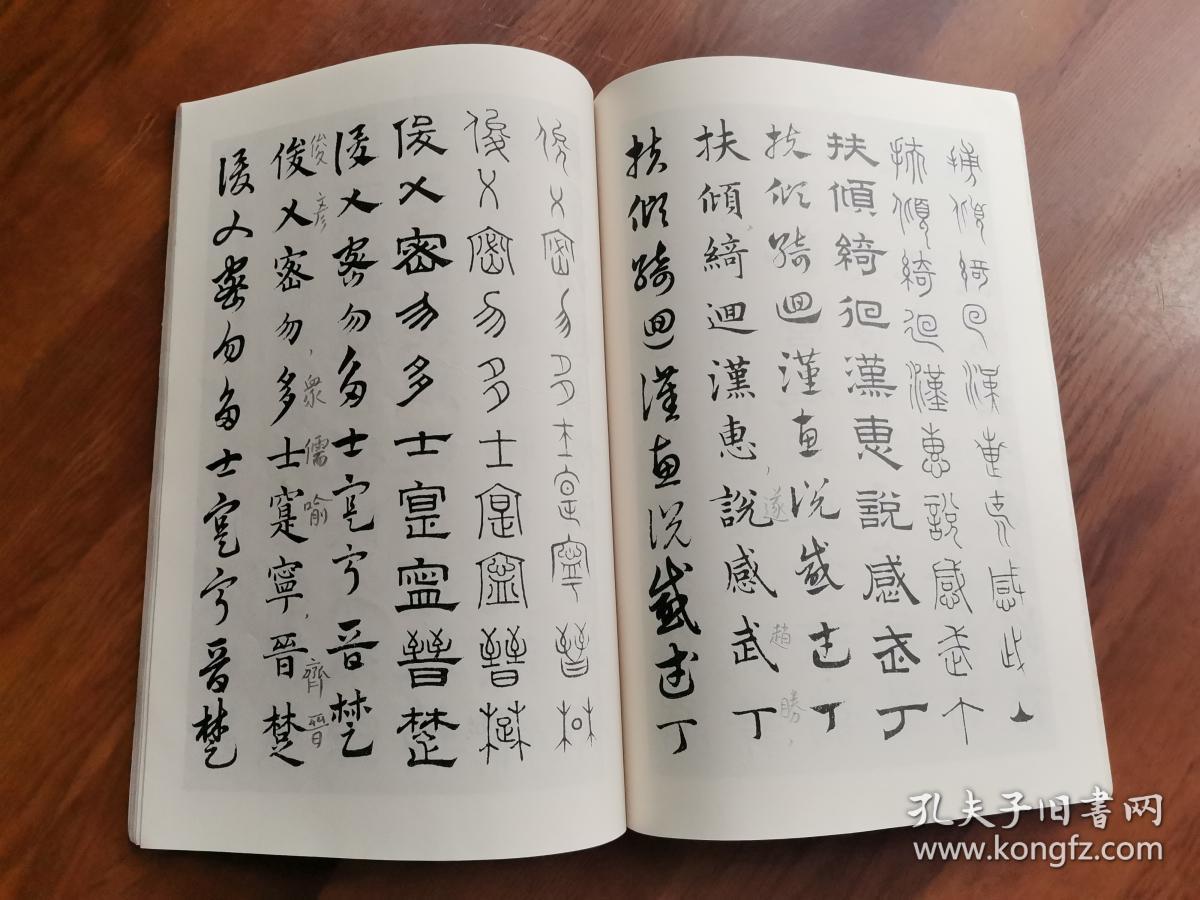 扶傾綺迴漢惠說感武丁
扶傾綺迴漢惠說感武丁
扶傾綺佪漢惠說感武丁
扶傾綺迴漢惠說感武丁
遂趙勝,
扶傾綺迴漢惠,說感武丁
扶傾綺迴漢惠說感武丁
俊乂密勿多士寔寧晉楚
俊乂密勿多士寔寧晉楚
俊乂密勿多士寔寧晉楚
俊乂密勿多士寔寧晉楚
俊彥衆儒喻齊晉
俊乂密勿,多士寔寧,晉楚
俊乂密勿多士寔寧晉楚
孔夫子旧书网
www.kongfz.com